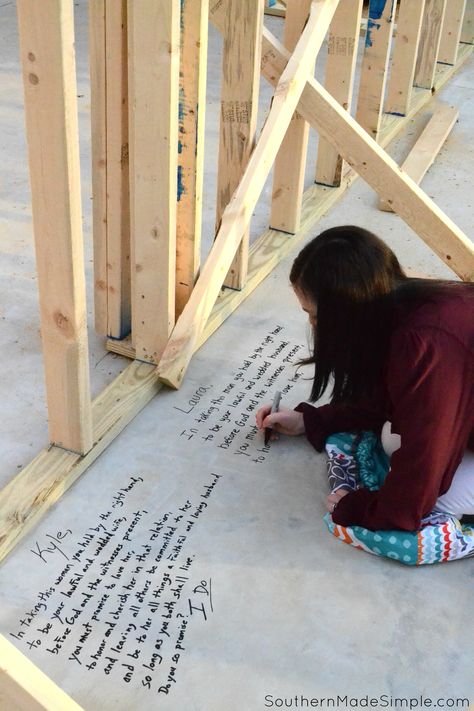 Laura,
In taking this man you hold by the right hand
to be your lawful and wedded husband,
before God and the witnesses present,
you must love him,
to h
Kyle,
In taking this woman, you hold by the right hand,
to be your lawful and wedded wife,
before God and the witnesses present,
you must promise to love her,
to honor and cherish her in that relation,
and leaving all others be committed to her
and be to her all things a faithful and loving husband
so long as you both shall live.
Do you so promise?
I Do
SouthernMadeSimple.com